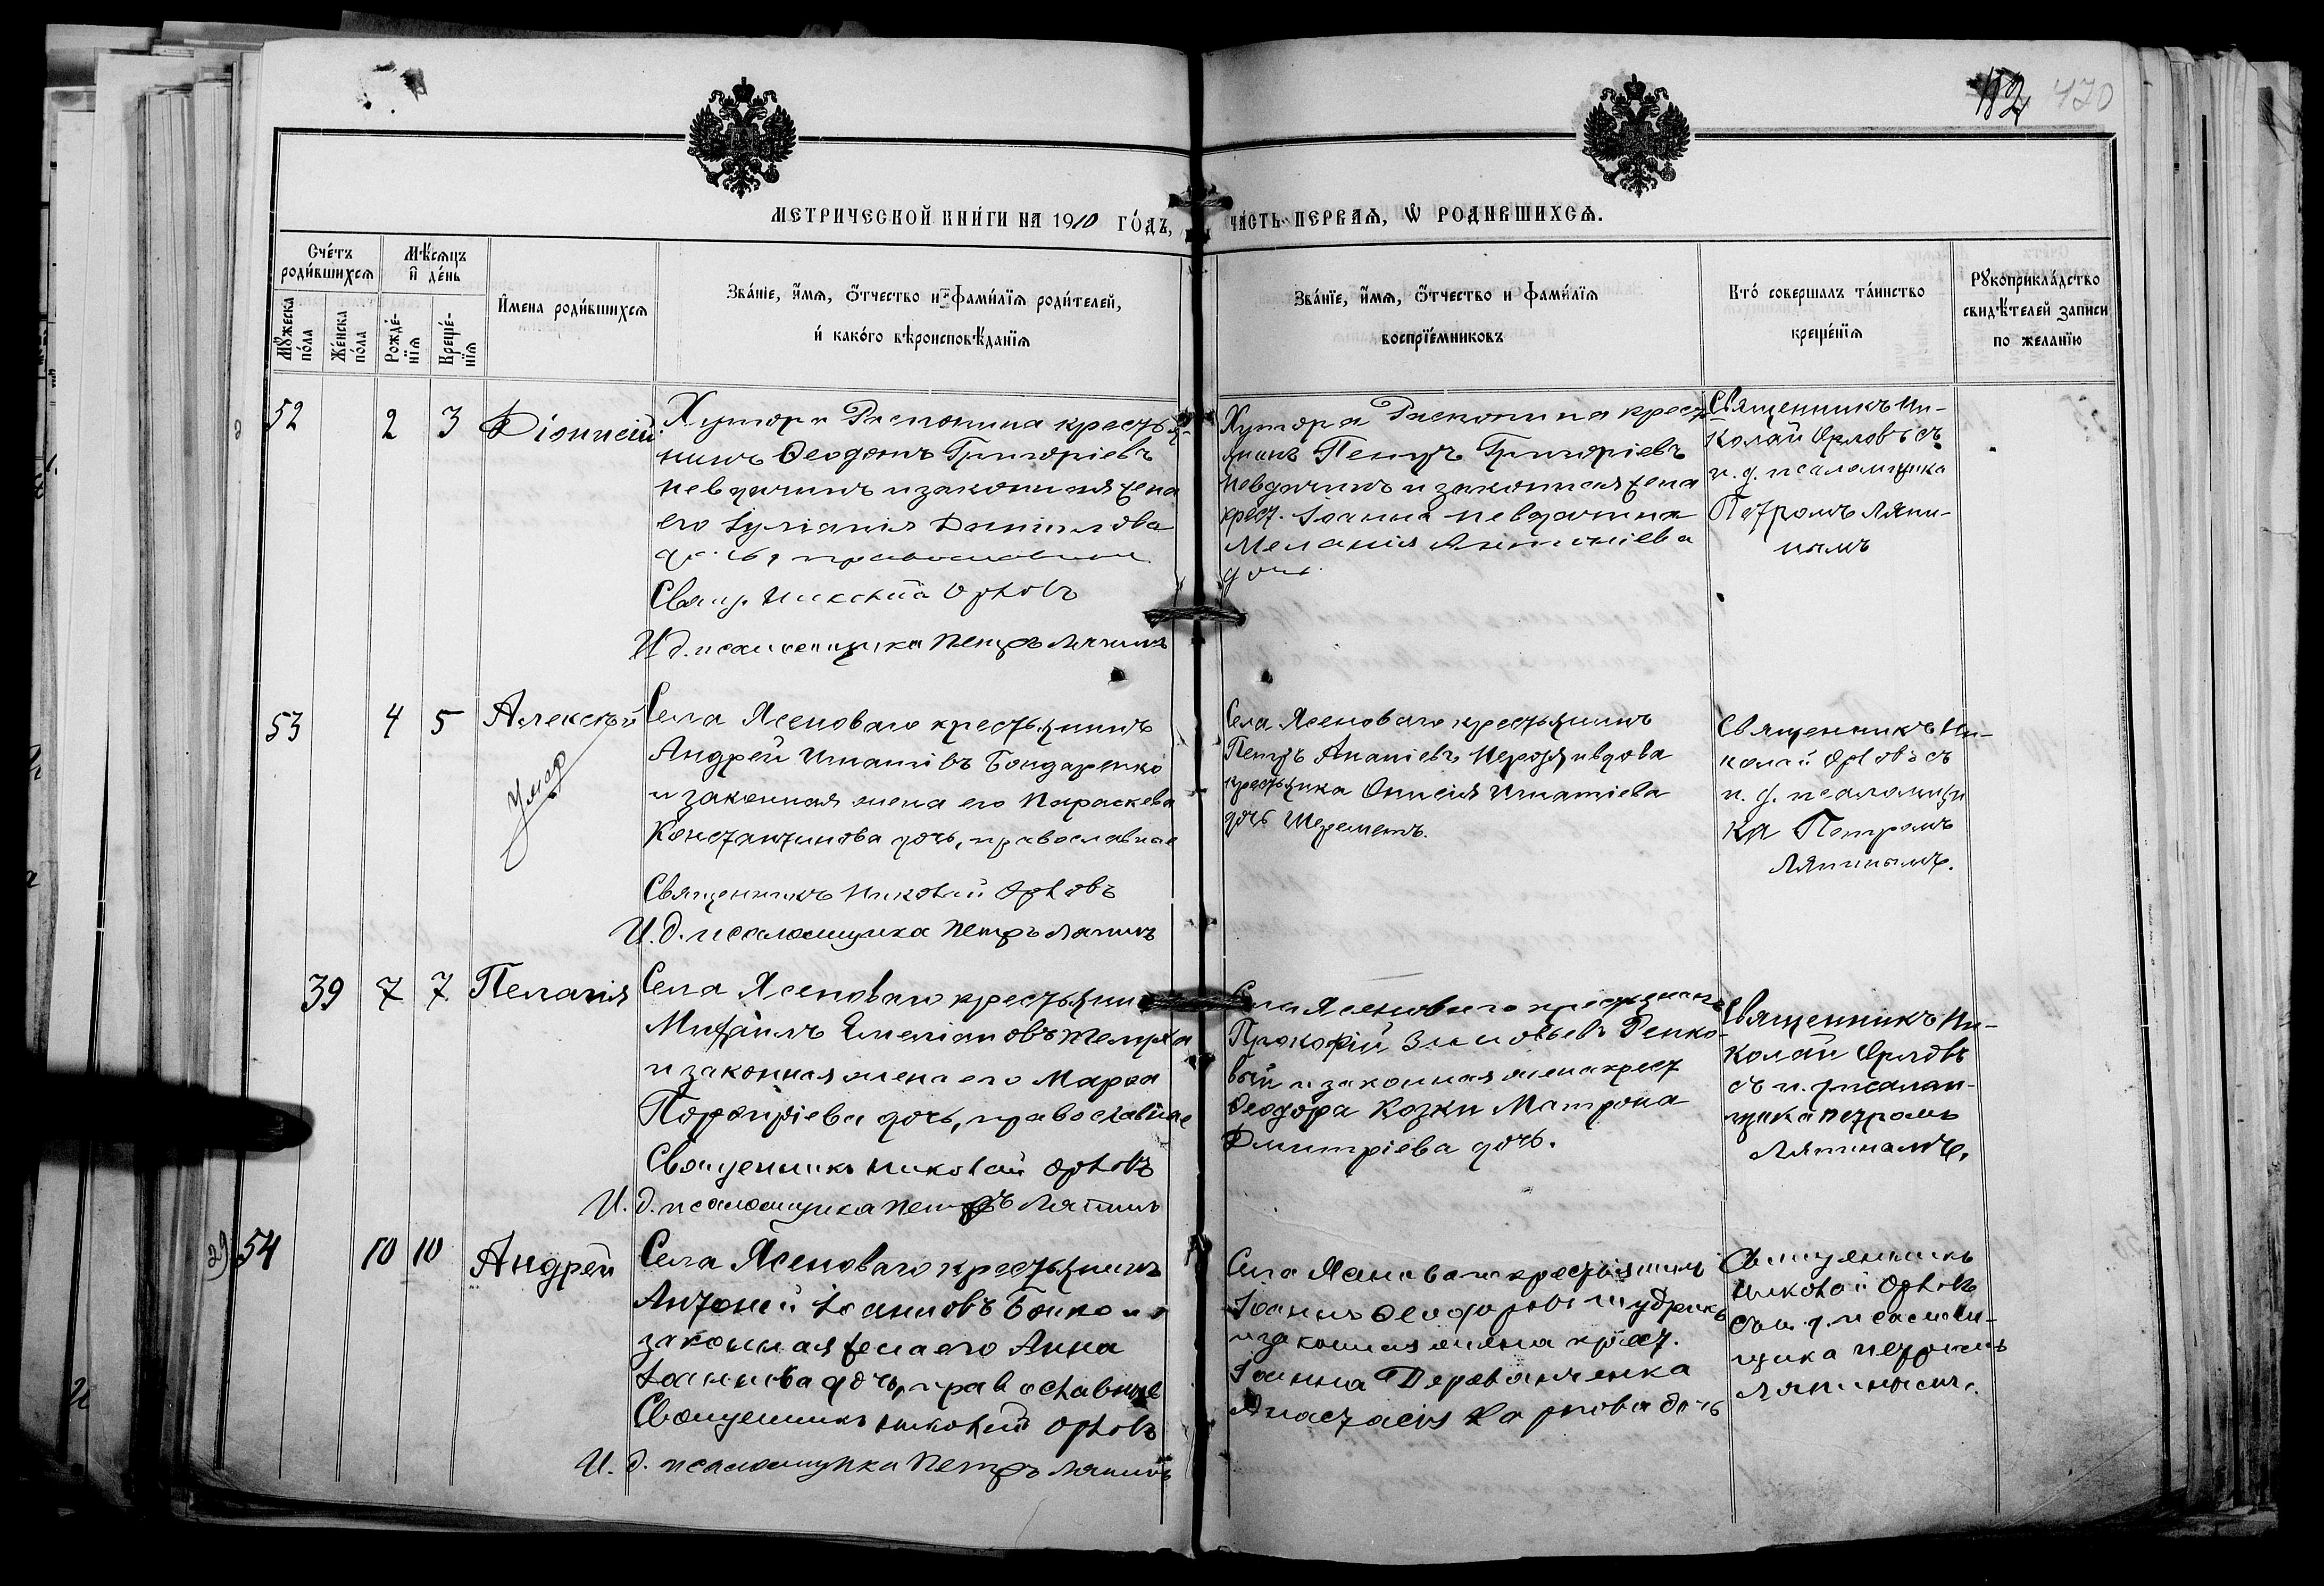 112 470
МЕТРИЧЕСКОЙ КНИ́ГИ НА 1910 ГО́ДЪ,
ЧА́СТЬ ПЕРВАѦ, Ѡ РОДИ́ВШИХСѦ.
Сче́тъ роди́вшихсѧ
Мꙋ́жеска по́ла
Же́нска по́ла
Мѣ́сѧцъ и҆ де́нь
Рожде́-нїѧ
Креще́-нїѧ
И҆мена роди́вшихсѧ
Зва́нїе, и҆́мѧ, ѻ҆́тчество и҆ фами́лїѧ роди́телей,
и҆ како́го вѣроисповѣ́данїѧ
Зва́нїе, и҆́мѧ, ѻ҆́тчество и фами́лїѧ
воспрїе́мниковъ
Кто́ совершалъ та́инство
креще́нїѧ
Рꙋкоприкла́дство
свидѣ́телей записи
по жела́нїю
52
2
3
Діонисій
Хутора Распопина крестья-
нинъ Ѳеодотъ Григоріевъ
Невдачинъ и законная жена
его Іуліанія Даніилова
дочь, православные
Свящ. Николай Орловъ
И. д. псаломщика Петръ Ляпинъ
Хутора Распопина крест-
янинъ Петръ Григоріевъ
Невдачинъ и законная жена
крест. Іоанна Невдачина
Меланія Антоніева
дочь
Священникъ Ни-
колай Орловъ съ
и. д. псаломщика
Петромъ Ляпи-
нымъ
53
4
5
Алексѣй
Умер
Села Ясеноваго крестьянинъ
Андрей Игнатіевъ Бондаренко
и законная жена его Параскева
Константинова дочь, православные
Священникъ Николай Орловъ
И. д. псаломщика Петръ Ляпинъ
Села Ясеноваго крестьянинъ
Петръ Ананіевъ вдова
крестьянка Онисія Игнатіева
дочь Шереметъ.
Священникъ Ни-
колай Орловъ съ
и. д. псаломщи
ка Петромъ
Ляпинымъ.
39
7
7
Пелагія
Села Ясеноваго крестьянинъ
Михаилъ Емеліановъ
и законная жена его Марѳа
Порфиріева дочь, православные
Священникъ Николай Орловъ
И. д. псаломщика Петръ Ляпинъ
Села Ясеноваго крестьянинъ
Прокофій Зиновьевъ Репко-
вый и законная жена крест
Ѳеодора Козки Матрона
Дмитріева дочь.
Священникъ Ни-
колай Орловъ
съ и. д. псалом-
щика Петромъ
Ляпинымъ.
54
10
10
Андрей
Села Ясеноваго крестьянинъ
Антоній Іоанновъ Бойко и
законная жена его Анна
Іоаннова дочь, православные
Священникъ Николай Орловъ
И. д. псаломщика Петръ Ляпинъ
Села Ясеноваго крестьянинъ
Іоаннъ Ѳеодоровъ
и законная жена крест.
Іоанна Деревянченка
Анастасія Карпова дочь
Священникъ
Николай Орловъ
съ и. д. псалом-
щика Петромъ
Ляпинымъ.